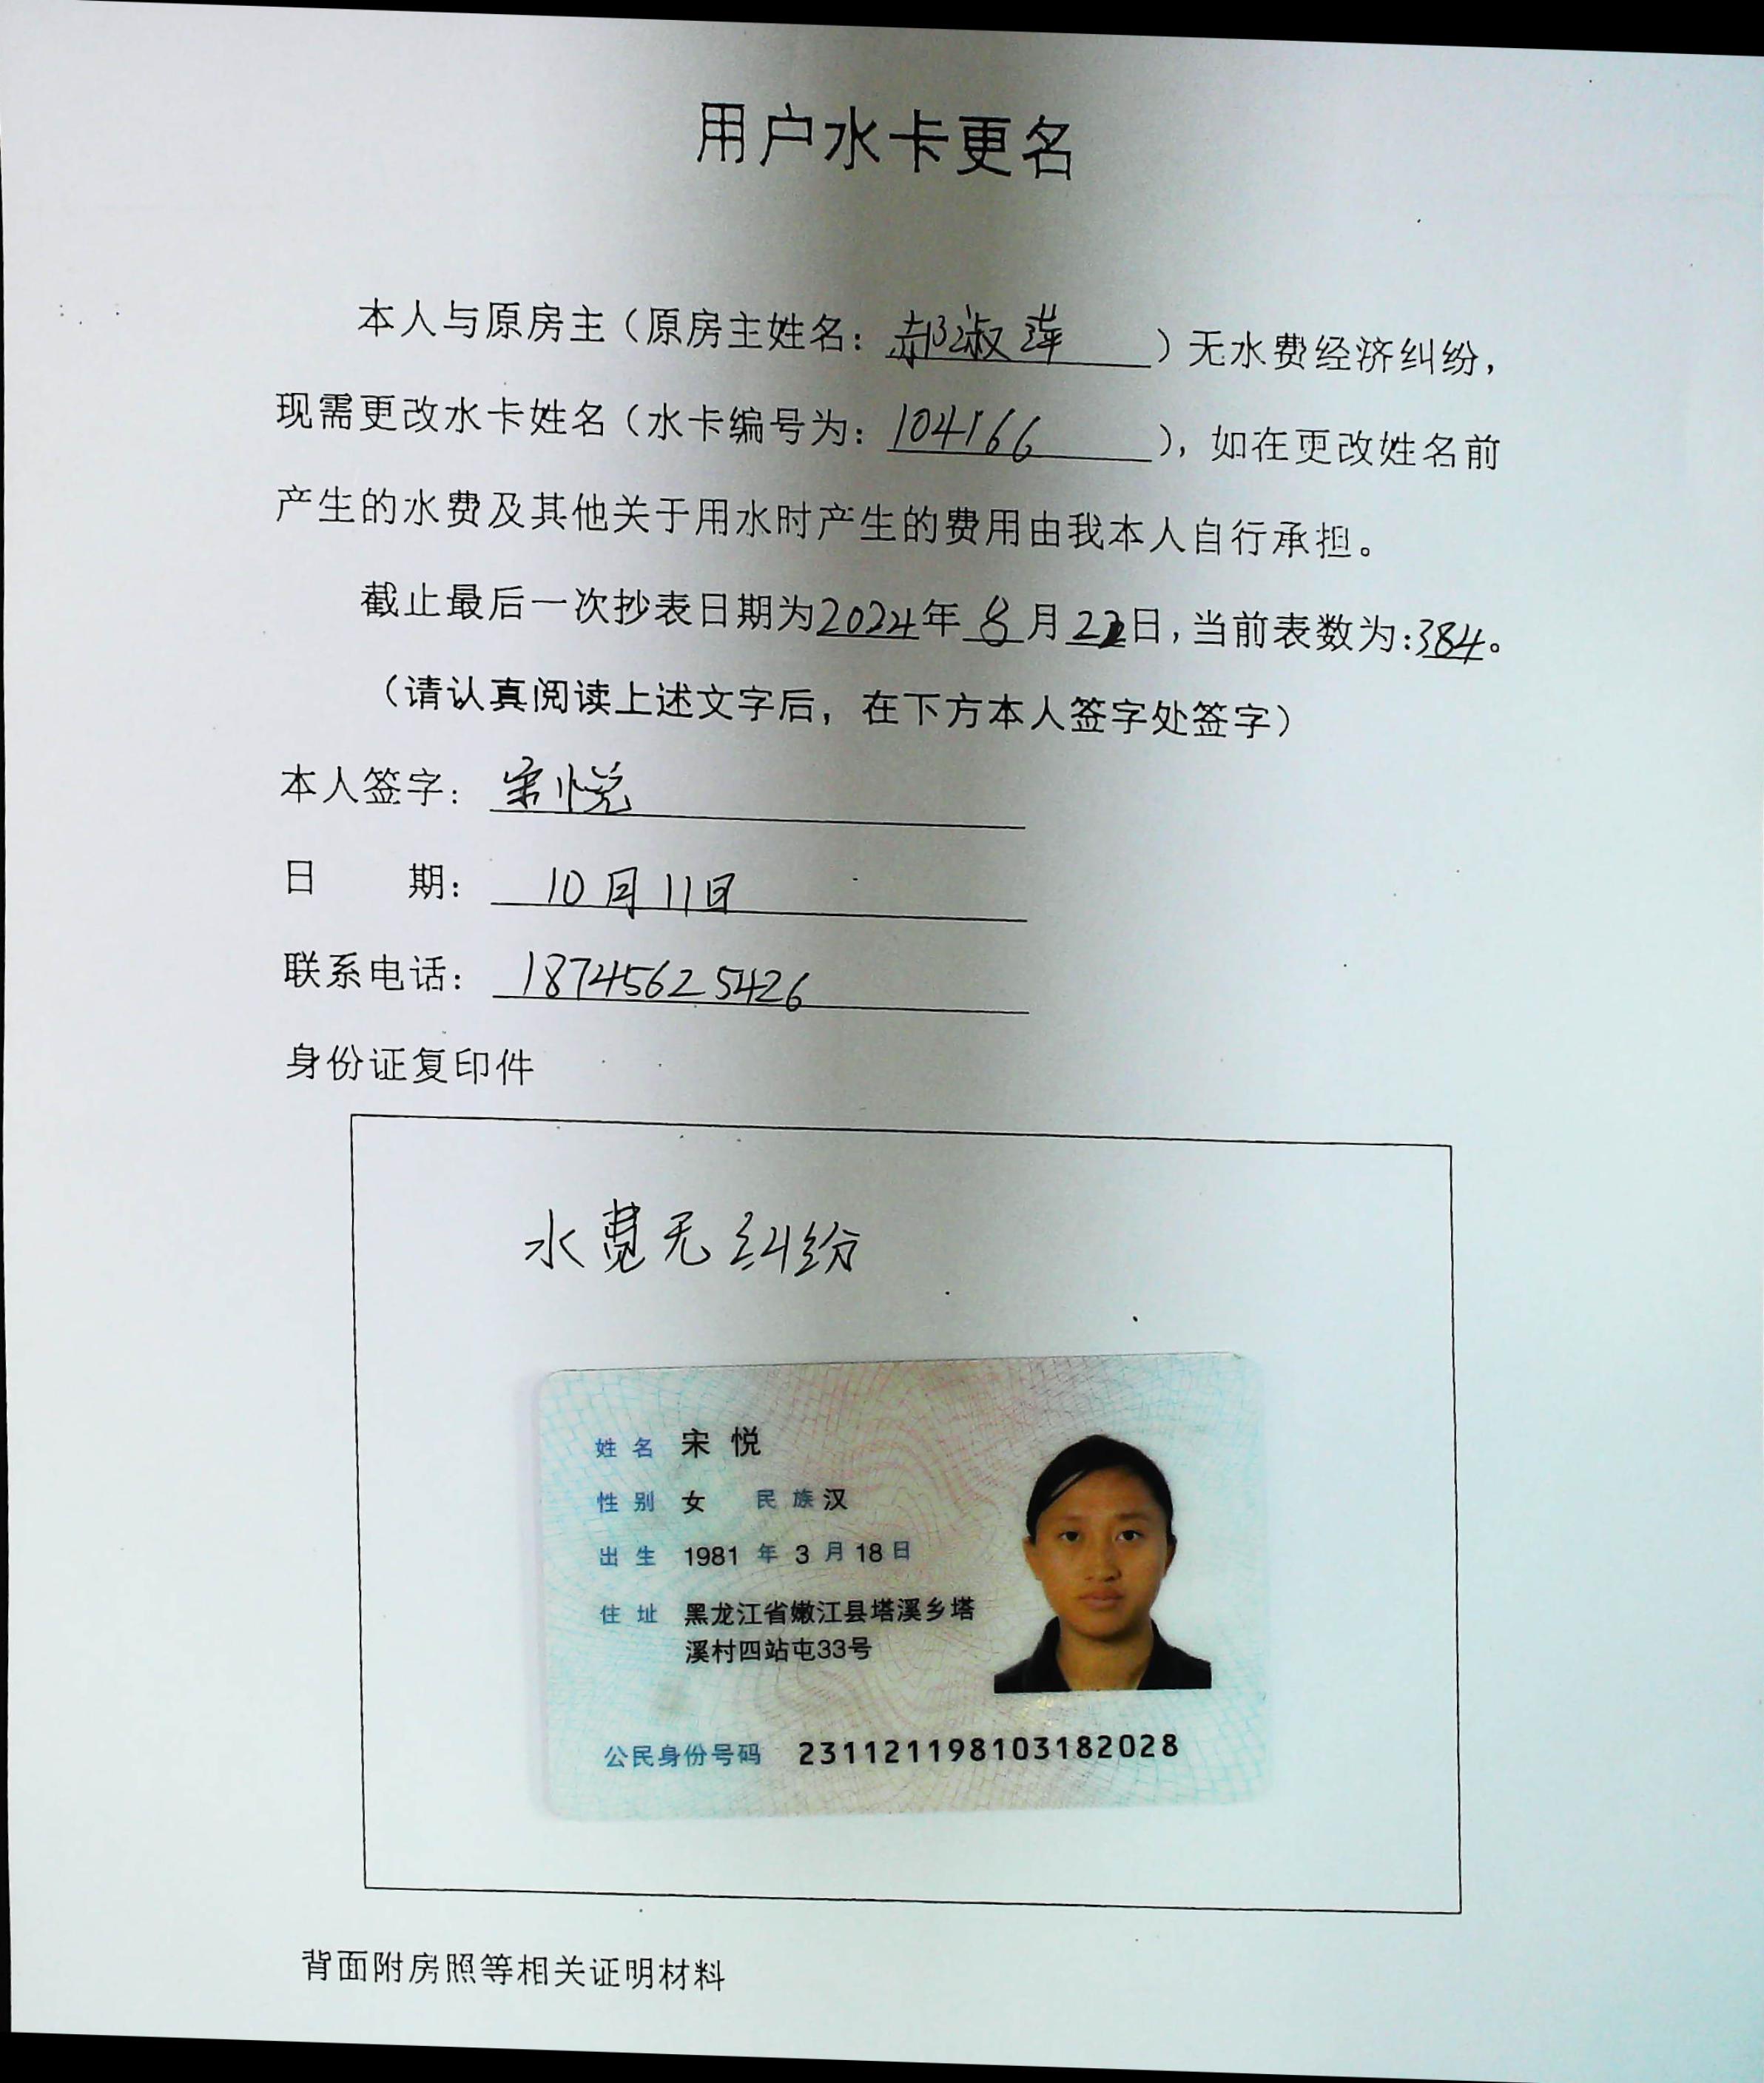 用户水卡更名
本人与原房主（原房主姓名：郝淑萍）无水费经济纠纷，
现需更改水卡姓名（水卡编号为：104166），如在更改姓名前
产生的水费及其他关于用水时产生的费用由我本人自行承担。
截止最后一次抄表日期为2024年8月22日，当前表数为：384。
（请认真阅读上述文字后，在下方本人签字处签字）
本人签字：宋悦
日 期：10月11日
联系电话：18745625426
身份证复印件
水费无纠纷
姓名 宋悦
性别 女 民族 汉
出生 1981年3月18日
住址 黑龙江省嫩江县塔溪乡塔
溪村四站屯33号
公民身份号码 231121198103182028
背面附房照等相关证明材料